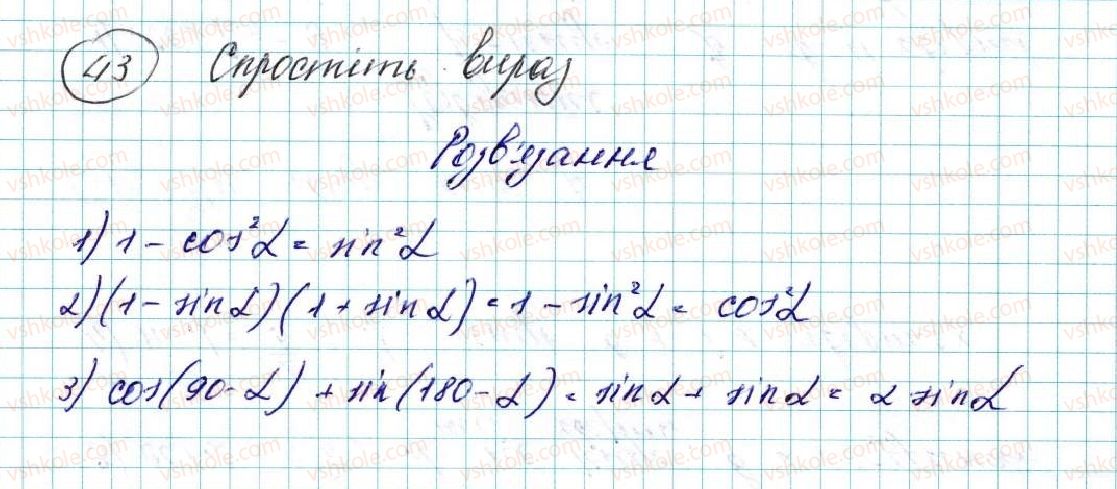 43 Спростіть вираз
Розв'язання
1) 1 - cos²α = sin²α
2) (1 - sin α)(1 + sin α) = 1 - sin²α = cos²α
3) cos(90 - α) + sin(180 - α) = sin α + sin α = 2 sin α
vshkole.com